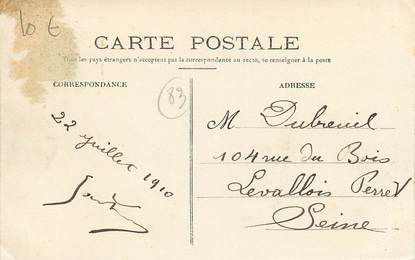 10 €
CARTE POSTALE
Tous les pays étrangers n'acceptent pas la correspondance au recto, se renseigner à la poste
CORRESPONDANCE
ADRESSE
83
22 juillet 1910
M Dubreuil
104 rue du Bois
Levallois Perret
Seine